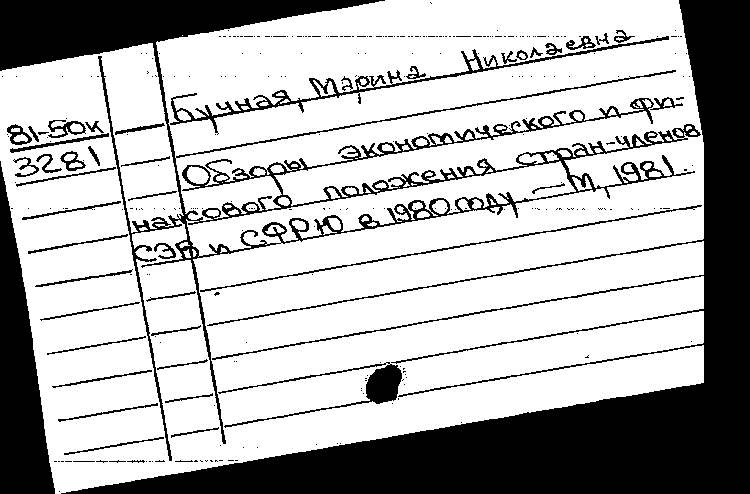 81-50к
3281
Бучная, Марина Николаевна
Обзоры экономического и фи-
нансового положения стран-членов
СЭВ и СФРЮ в 1980 году. — М, 1981.